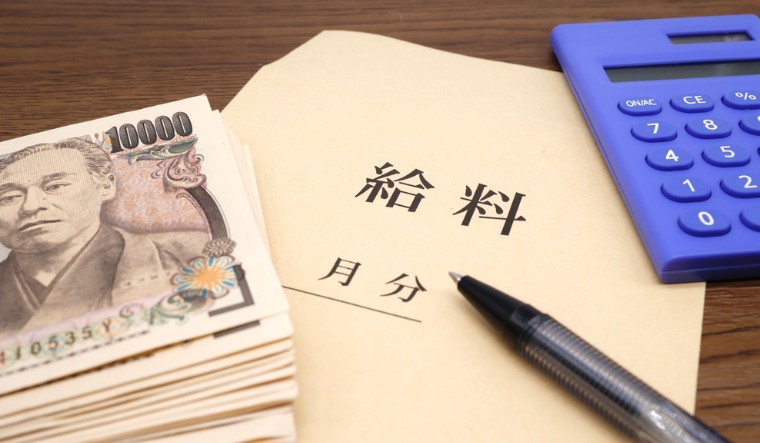 10000
410535Y
給料
月分
ON/AC CE %
7 8
4 5
1 2
0